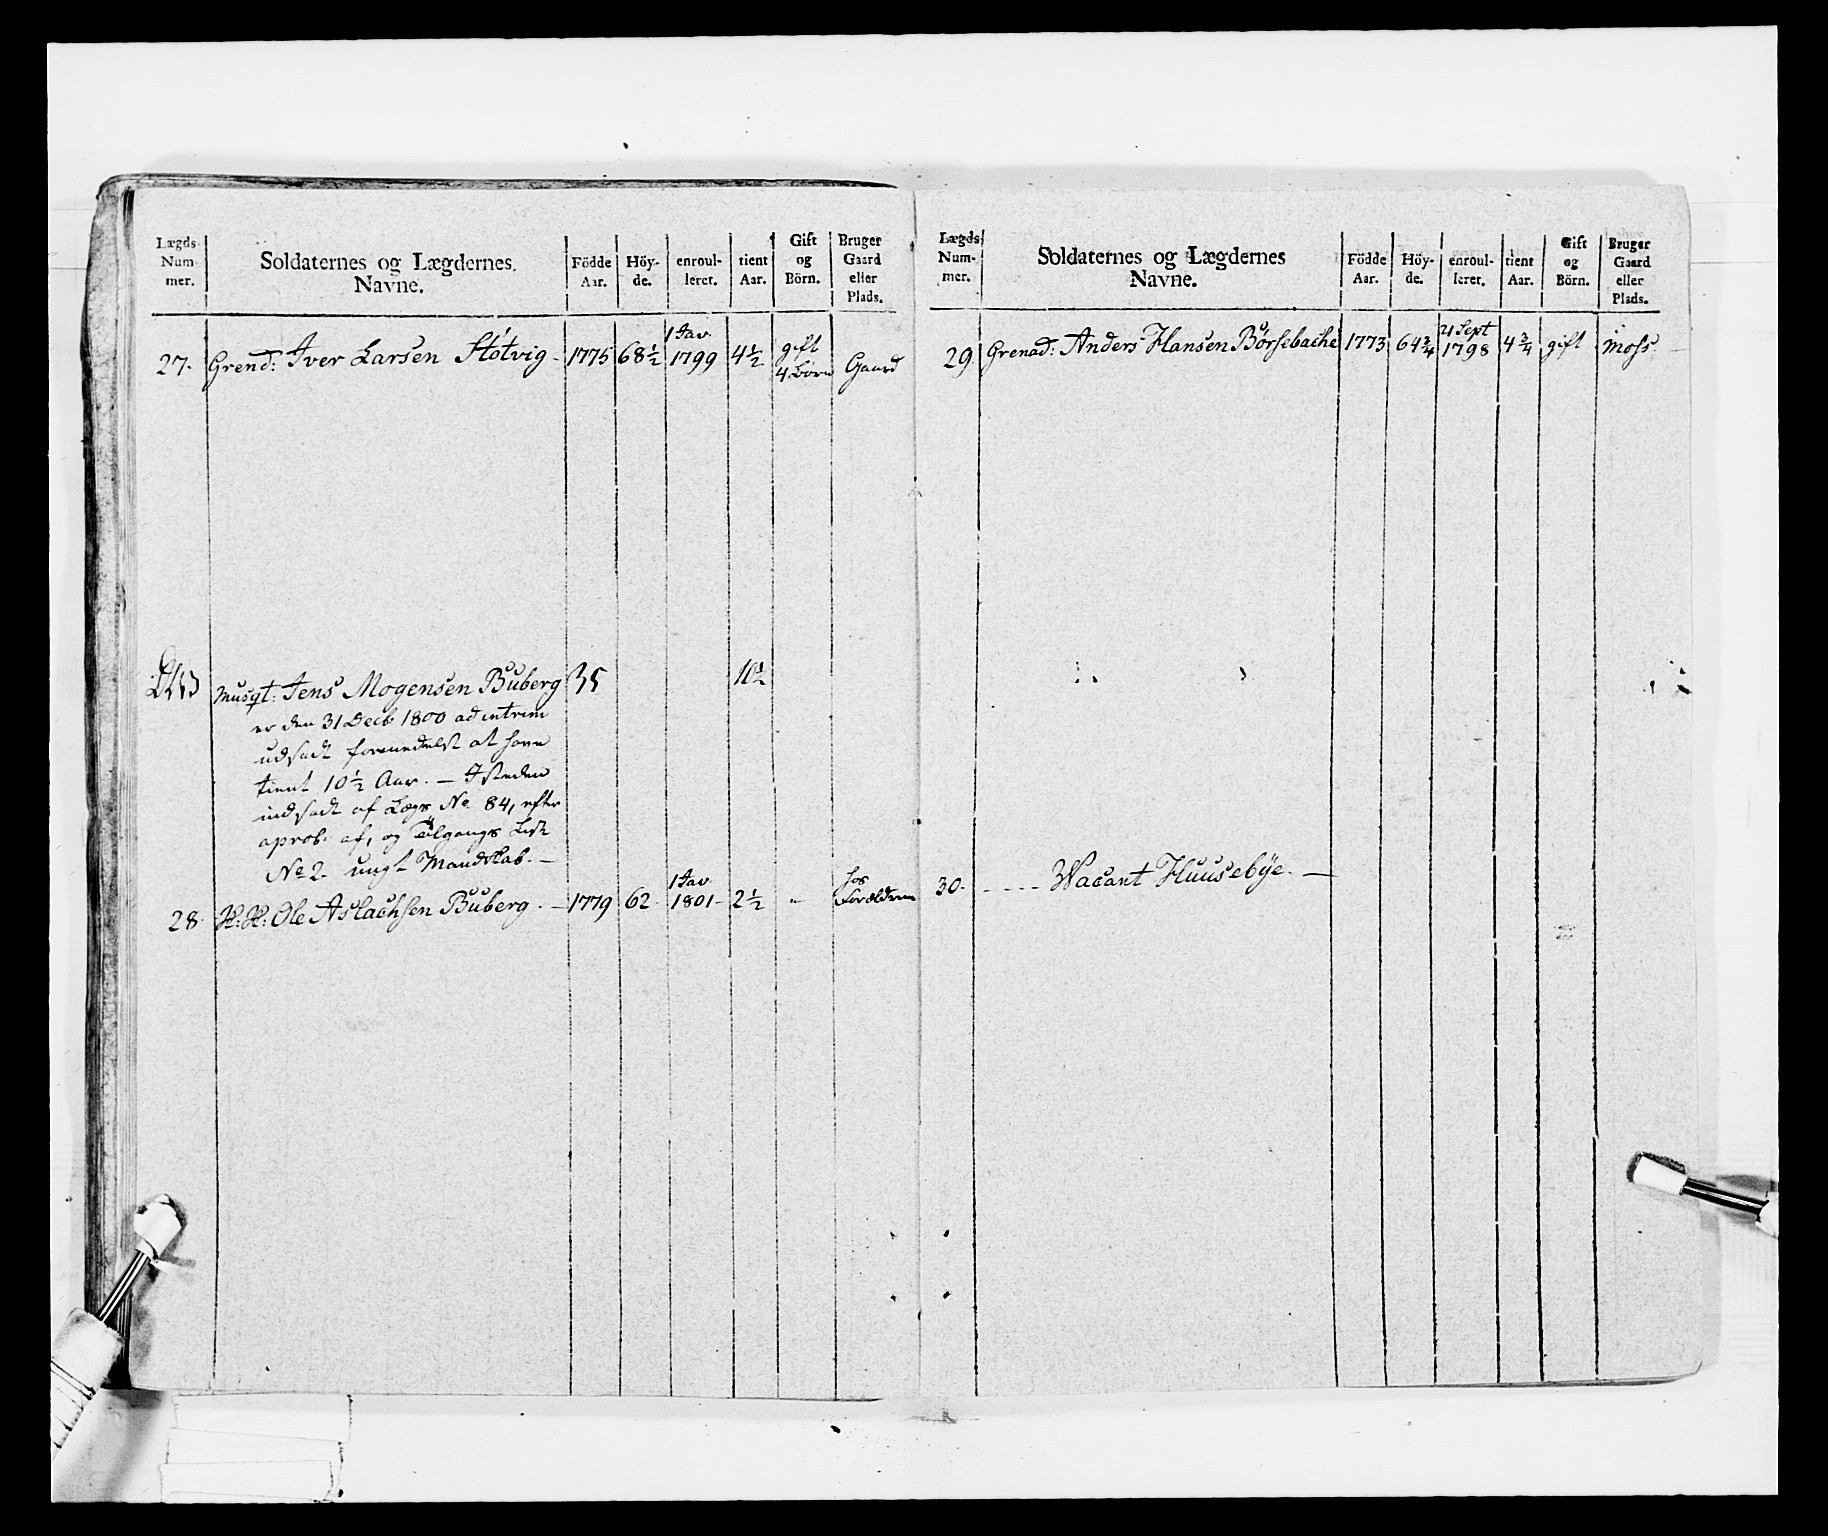 Lægds Num mer. Soldaternes og Lægdernes. Navne. Födde Aar. Höy- de. enroul- leret. tient Aar. Gift og Börn. Bruger Gaard eller Plads.
27. Grend: Iver Larsen Stötvig - 1775 68½ 1 Jan 1799 4½ gift 4 Börn Gaard
Musqt: Jens Mogensen Buberg 35 10½
er den 31 Decb 1800 ad intrim
udsadt formedelst at have
tient 10½ Aar. — I steden
indsadt af Lægs No 84, efter
aprob. af, og Tilgangs List
No 2. ungt Mandskab. —
28. H: H: Ole Aslachsen Buberg. — 1779 62. 1 Jan 1801 - 2½ " hos Forældrene
Lægds Num- mer. Soldaternes og Lægdernes Navne. Födde Aar. Höy- de. enroul- leret. tient Aar. Gift og Börn. Bruger Gaard eller Plads.
29. Grenad: Anders Hansen Börsebache 1773 64¾ 21 Sept 1798 4¾ gift i Moss.
30. - - - - Wacant Huusebÿe. —